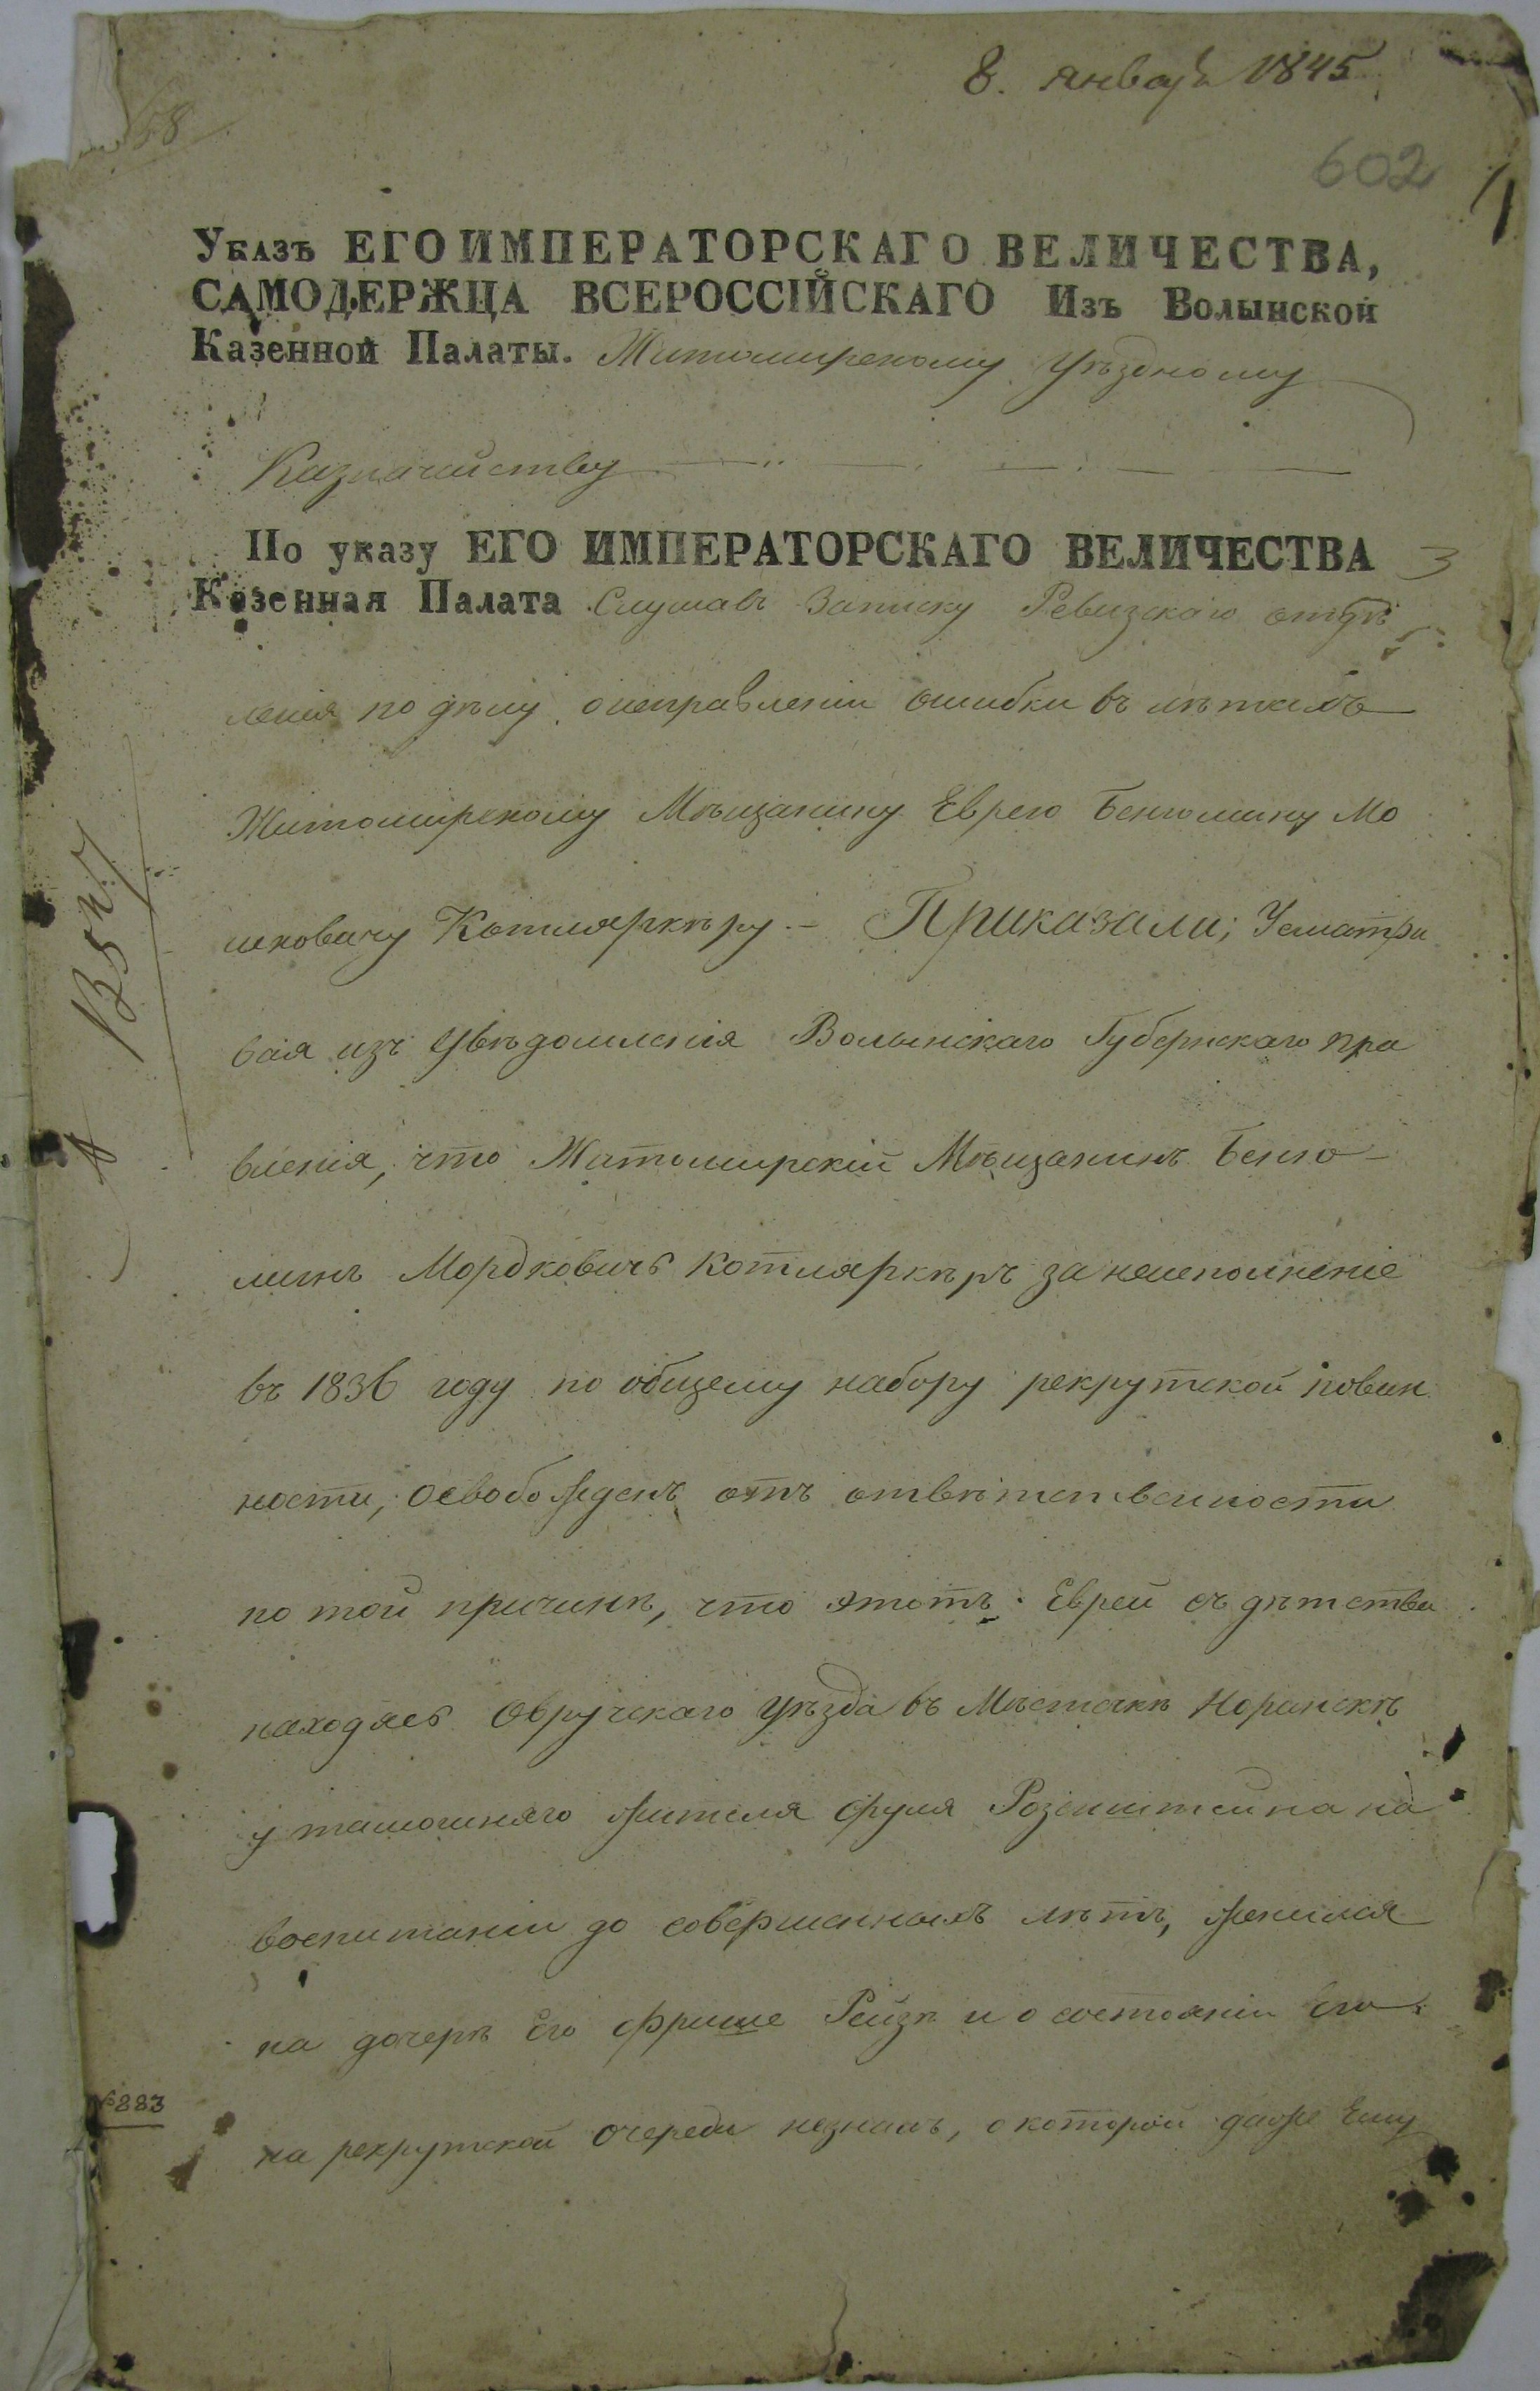 8. января 1845
58
602
1
Указъ ЕГО ИМПЕРАТОРСКАГО ВЕЛИЧЕСТВА,
САМОДЕРЖЦА ВСЕРОССІЙСКАГО Изъ Волынской
Казенной Палаты. Житомирскому Уѣздному
Казначейству
По указу ЕГО ИМПЕРАТОРСКАГО ВЕЛИЧЕСТВА
3
Казенная Палата Слушавъ Записку Ревизскаго отдѣ
ленія по дѣлу о исправленіи ошибки въ лѣтахъ
Житомирскому Мѣщанину Еврею Бенюмину Мо
шковичу Котляркѣру.- Приказали; Усматри
вая изъ увѣдомленія Волынскаго Губернскаго пра
вленія, что Житомирскій Мѣщанинъ Беню-
минъ Мордковичъ Котляркѣръ за неисполненіе
въ 1836 году по общему набору рекрутской повин
ности, освобожденъ отъ отвѣтственности
по той причинѣ, что этотъ Еврей съ дѣтства
находясь Овручскаго уѣзда въ Мѣстечкѣ Норинскѣ
у тамошняго жителя Сруля Розенштейна на
воспитаніи до совершенныхъ лѣтъ, женился
на дочерѣ Его Фриме Рейзѣ и о состояніи Его
на рекрутской очереди незналъ, о которой даже Ему
№883